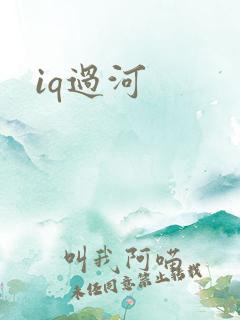 iq過河
叫我阿喵
未经同意禁止转载